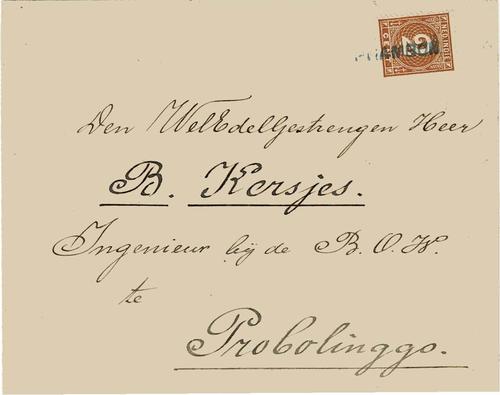 Den WelEdelGestrengen Heer
B. Kersjes.
Ingenieur bij de B. O. W.
te
Probolinggo.